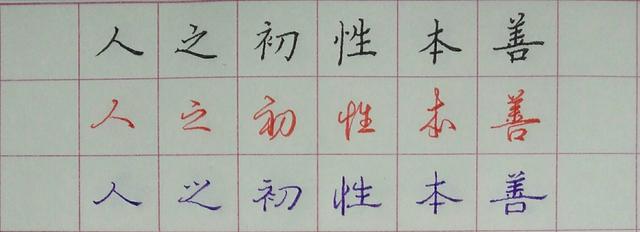 人之初性本善
人之初性本善
人之初性本善